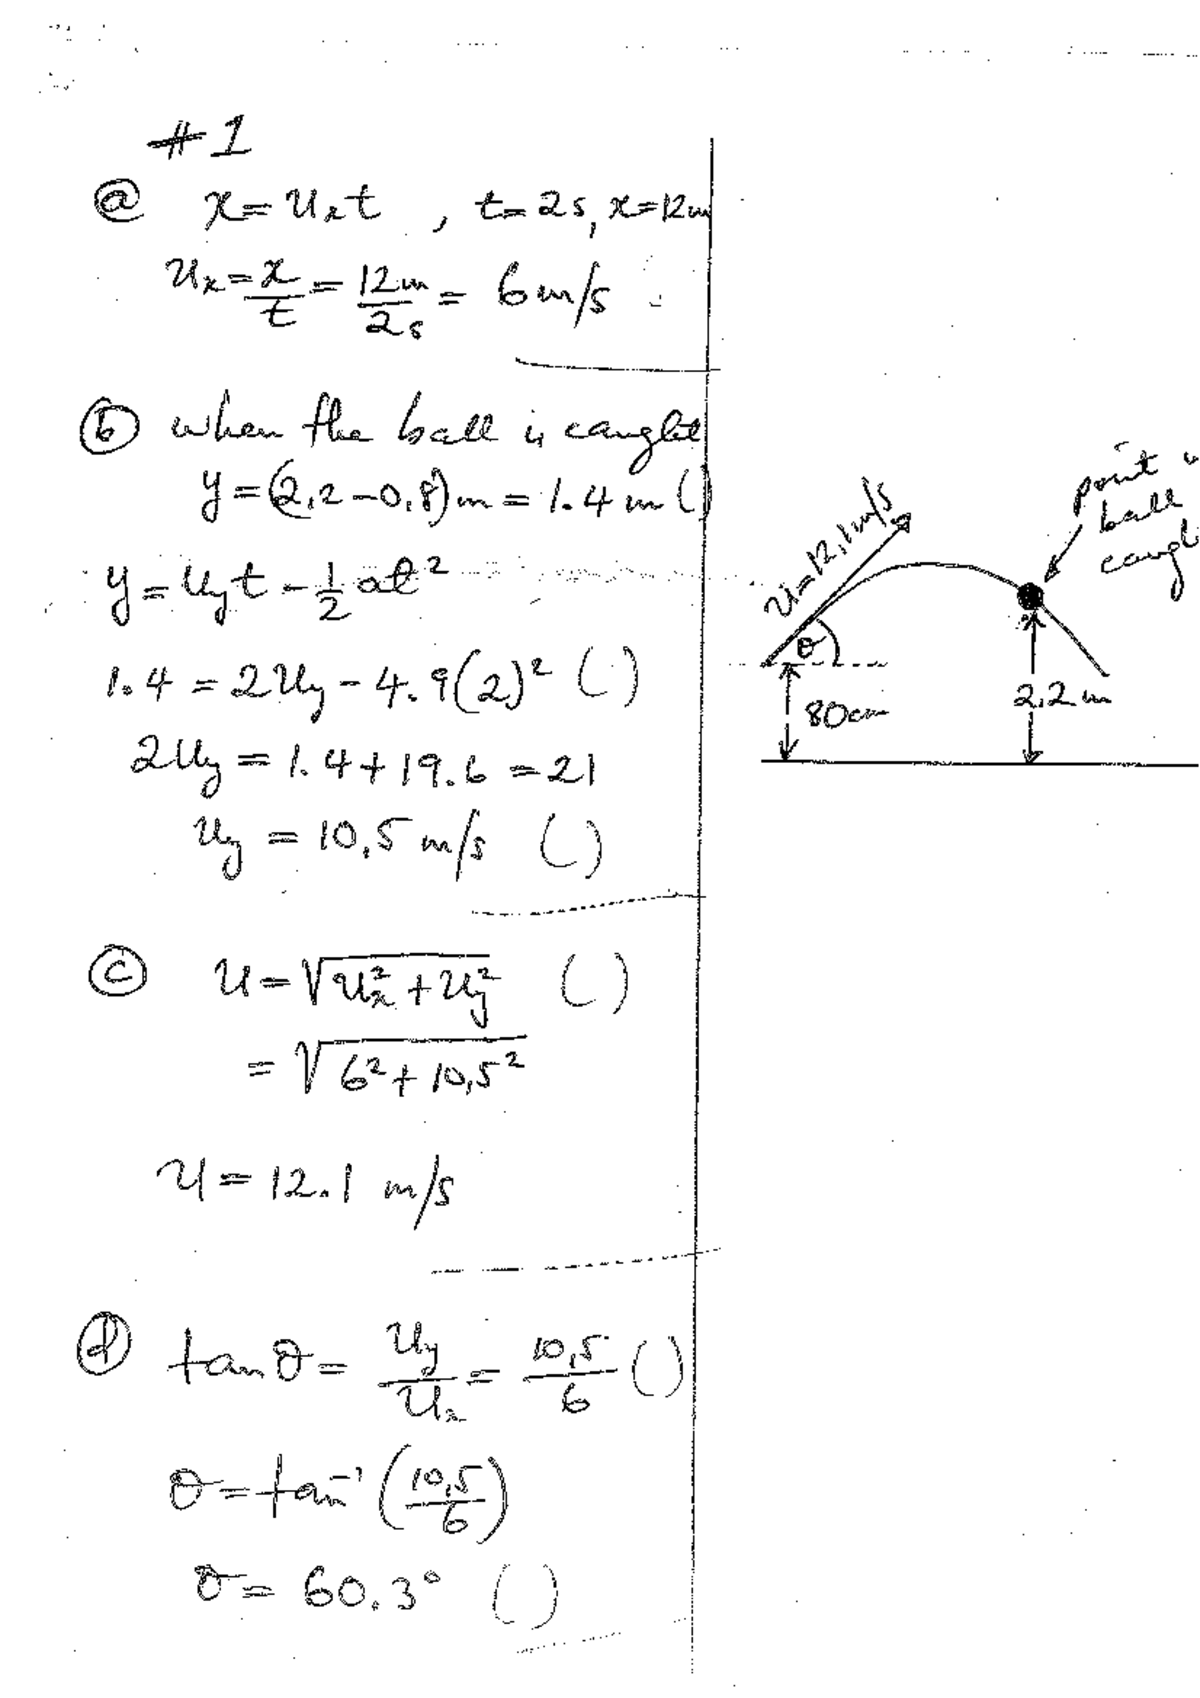 #1
(a) x = uₓt , t = 2s, x = 12m
uₓ = x/t = 12m/2s = 6 m/s
(b) when the ball is caught
y = (2.2 - 0.8) m = 1.4 m ( )
y = u_y t - 1/2 at²
1.4 = 2u_y - 4.9(2)² ( )
2u_y = 1.4 + 19.6 = 21
u_y = 10.5 m/s ( )
(c) u = √(uₓ² + u_y²) ( )
= √(6² + 10.5²)
u = 12.1 m/s
(d) tan θ = u_y/uₓ = 10.5/6 ( )
θ = tan⁻¹ (10.5/6)
θ = 60.3° ( )
point
ball
caug
u = 12.1 m/s
θ
80cm
2.2 m